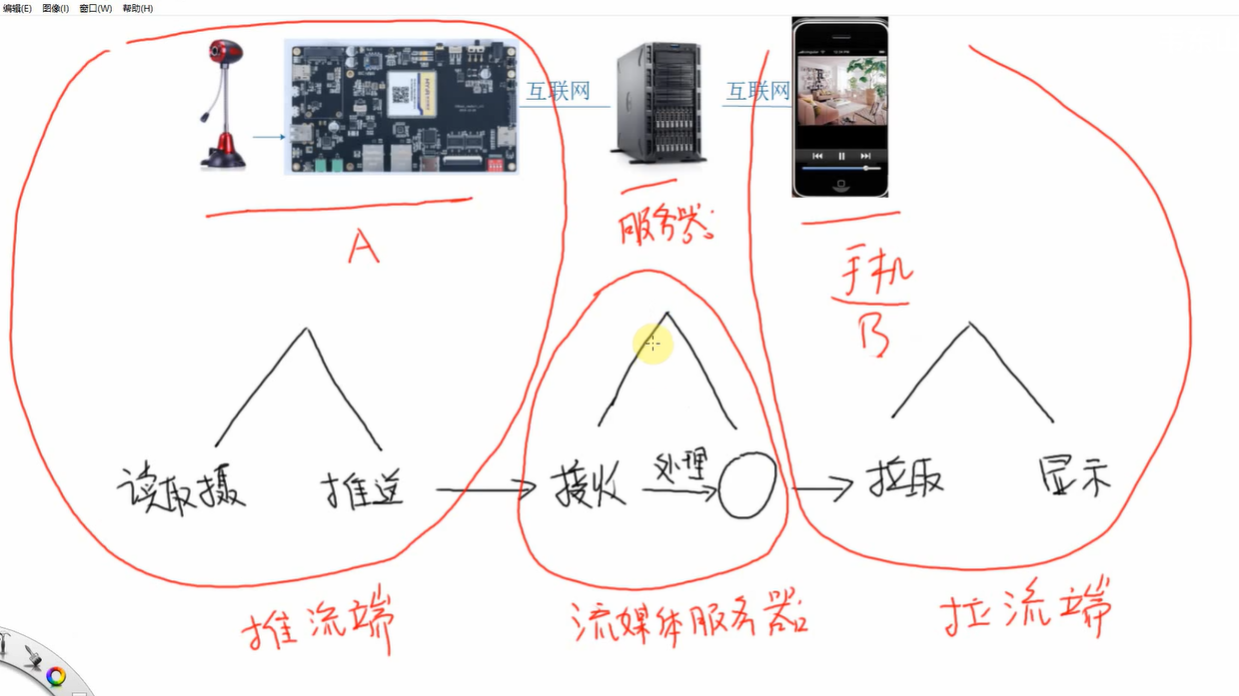 编辑(E) 图像(I) 窗口(W) 帮助(H)
互联网
互联网
A
服务器:
手机
B
读取摄
推送
接收
处理
拉取
显示
推流端
流媒体服务器
拉流端